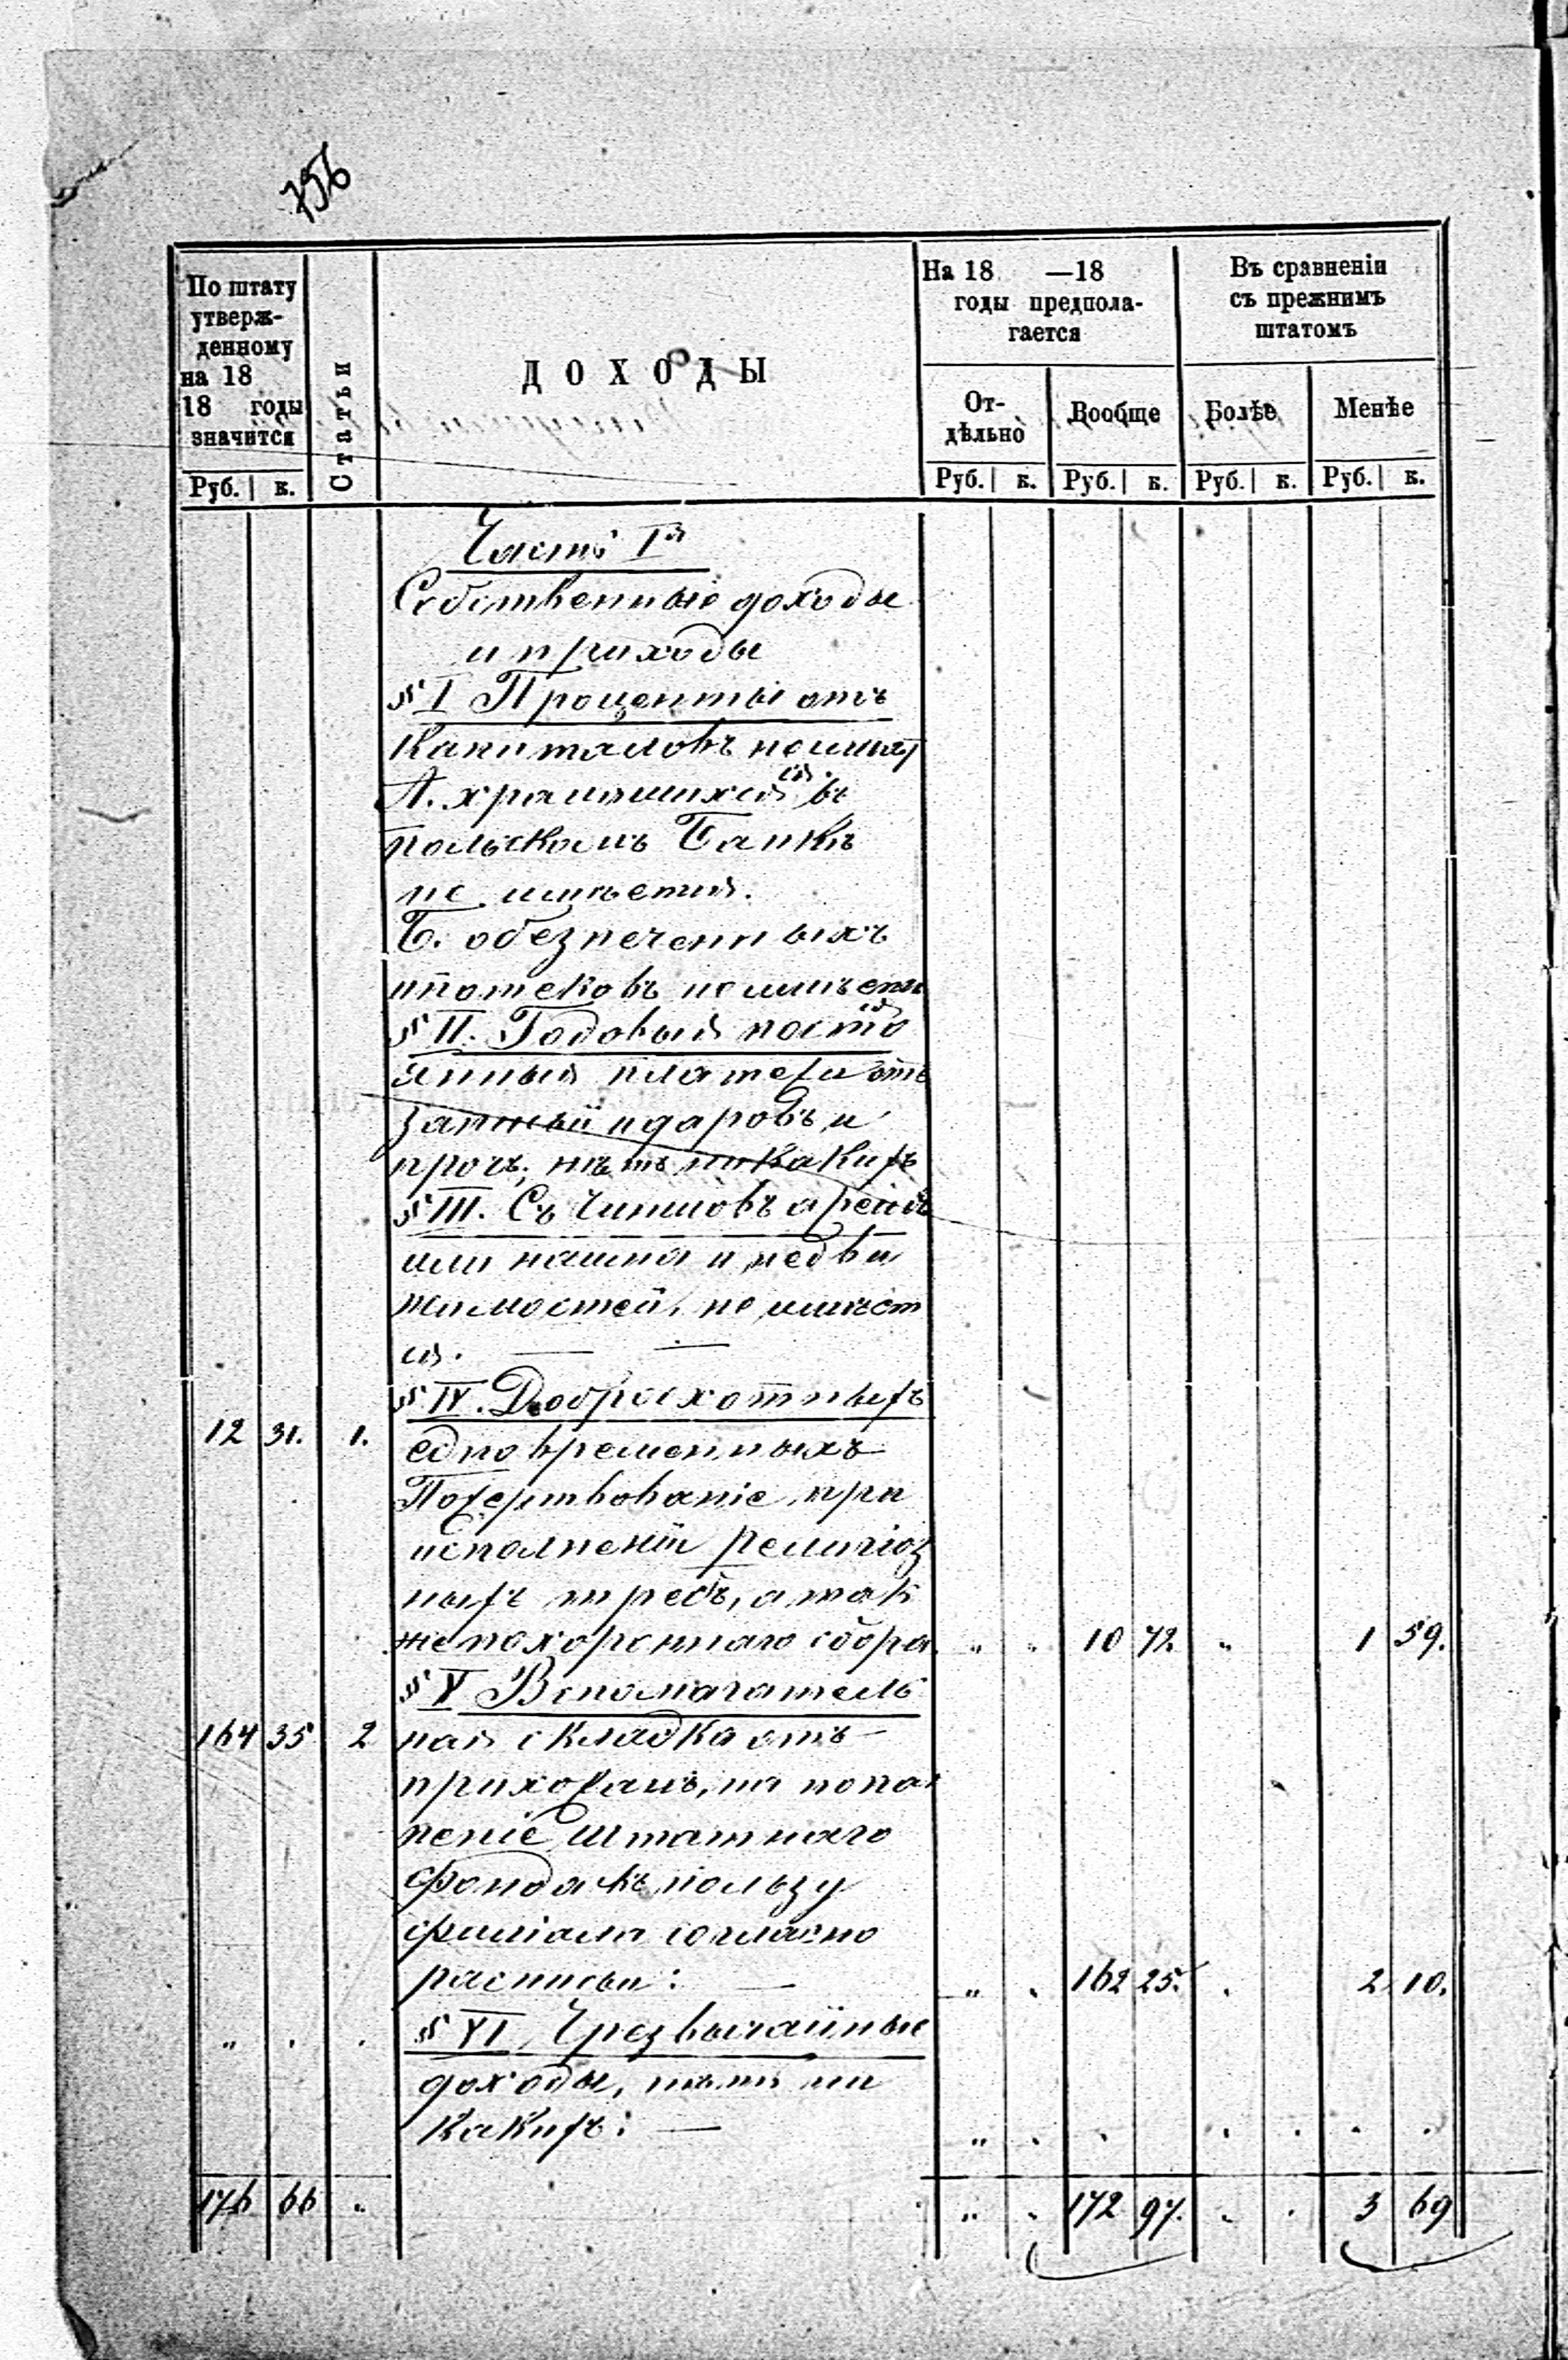 756
По штату
утверж-
денному
на 18
18 годы
значится
Руб. к.
Статьи
ДОХОДЫ
На 18 —18
годы предпола-
гается
От-
дѣльно
Вообще
Руб. к. Руб. к.
Въ сравненіи
съ прежнимъ
штатомъ
Болѣе Менѣе
Руб. к. Руб. к.
Часть Iя
Собственные доходы
и приходы
§ I Проценты отъ
Капиталовъ неимѣет
ся.
А. хранящихся въ
польскомъ Банкѣ
не имѣется.
Б. обезпеченныхъ
ипотековъ не имѣет
ся
§ II. Годовыя посто
янныя платежи отъ
записей и даровъ и
прочъ; нѣтъ никакихъ
§ III. Съ Чиншовъ арендъ
или найма и недви
жимостей, не имѣет
ся. — —
§ IV. Доброхотныхъ
12 31. 1. едновременныхъ
Пожертвованіе при
исполненіи религіоз
ныхъ требъ, а так
же похороннаго сбора „ „ 10 72 „ 1 59.
§ V Вспомагатель
164 35 2 ная складка отъ
прихожанъ, на попол
неніе штатнаго
фонда въ пользу
филіала согласно
росписи: — „ . 162 25. . 2 10.
§ VI Чрезвычайные
„ . . доходы, нѣтъ ни
какихъ: — „ . . . . . .
176 66 „ „ . 172 97. . . 3 69